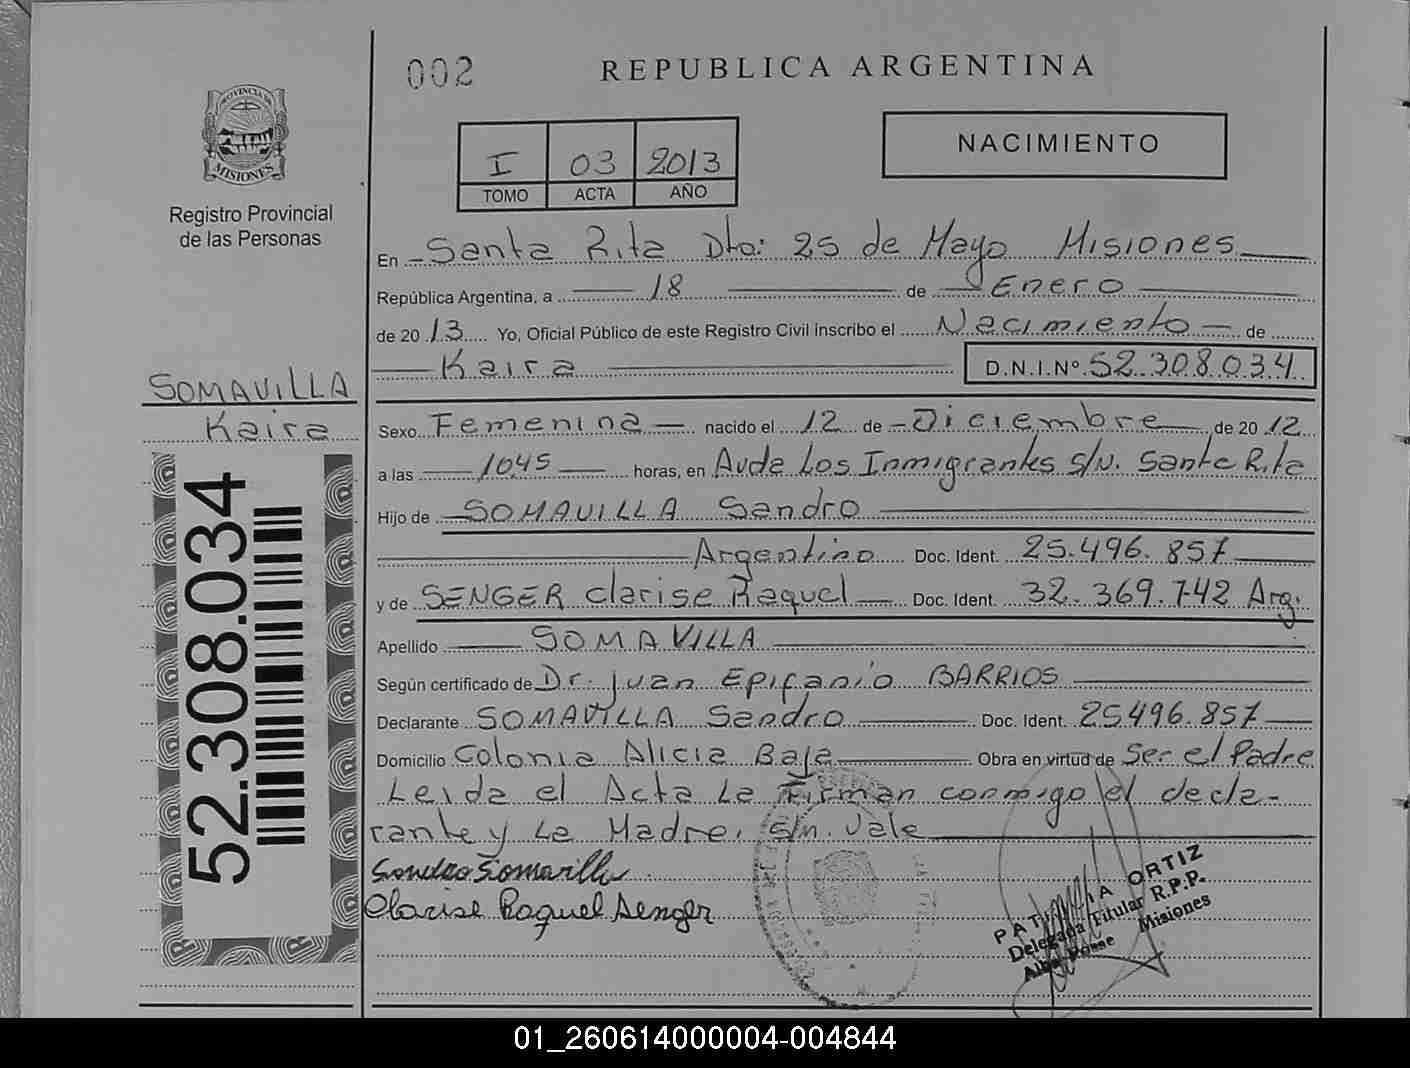 002
REPUBLICA ARGENTINA
PROVINCIA DE
MISIONES
Registro Provincial
de las Personas
I 03 2013
TOMO ACTA AÑO
NACIMIENTO
En Santa Rita Dto: 25 de Mayo Misiones
República Argentina, a 18 de Enero
de 2013 Yo, Oficial Público de este Registro Civil inscribo el Nacimiento de
Kaira D.N.I.Nº 52.308.034
SOMAVILLA
Kaira
52.308.034
Sexo Femenina nacido el 12 de Diciembre de 2012
a las 1045 horas, en Avda Los Inmigrantes S/N. Santa Rita
Hijo de SOMAVILLA Sandro
Argentino Doc. Ident. 25.496.857
y de SENGER Clarise Raquel Doc. Ident. 32.369.742 Arg.
Apellido SOMAVILLA
Según certificado de Dr. Juan Epifanio BARRIOS
Declarante SOMAVILLA Sandro Doc. Ident. 25496.857
Domicilio Colonia Alicia Baja Obra en virtud de Ser el Padre
Leida el Acta La Firman conmigo el decla-
rante y La Madre. S/n. Vale
Sandro Somavilla
Clarise Raquel Senger
ORTIZ
Delegada Titular R.P.P.
Alba Posse Misiones
01_260614000004-004844